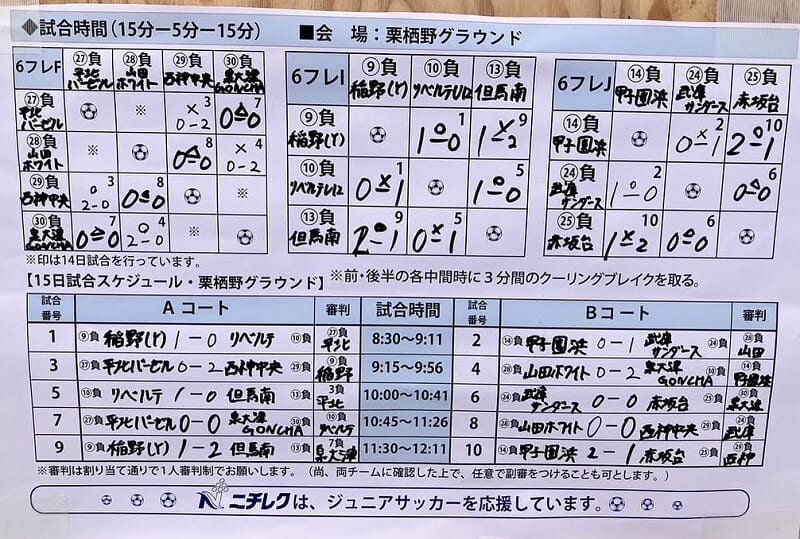 ◆試合時間(15分ー5分ー15分) ■会 場：栗栖野グラウンド
6フレF ㉗負 平北バーゼル ㉘負 山田ホワイト ㉙負 西神中央 ㉚負 泉大津GONCHA
㉗負 平北バーゼル ※ × 3 0-2 △ 7 0=0
㉘負 山田ホワイト ※ △ 8 0=0 × 4 0-2
㉙負 西神中央 ○ 3 2-0 △ 8 0=0 ※
㉚負 泉大津GONCHA △ 7 0=0 ○ 4 2-0 ※
6フレI ⑨負 稲野(Y) ⑩負 リベルテU12 ⑬負 但馬南
⑨負 稲野(Y) ○ 2 1-0 × 9 1-2
⑩負 リベルテU12 × 1 0-1 ○ 5 1-0
⑬負 但馬南 ○ 9 2-1 × 5 0-1
6フレJ ⑭負 甲子園浜 ㉔負 武庫サンダース ㉕負 赤坂台
⑭負 甲子園浜 × 2 0-1 ○ 10 2-1
㉔負 武庫サンダース ○ 2 1-0 △ 6 0=0
㉕負 赤坂台 × 10 1-2 △ 6 0=0
※印は14日試合を行っています。
【15日試合スケジュール・栗栖野グラウンド】 ※前・後半の各中間時に3分間のクーリングブレイクを取る。
試合番号 Aコート 審判 試合時間 試合番号 Bコート 審判
1 ⑨負 稲野(Y) 1-0 リベルテ ⑩負 ㉗負 平北 8:30～9:11 2 ⑭負 甲子園浜 0-1 武庫サンダース ㉔負 ㉘負 山田
3 ㉗負 平北バーゼル 0-2 西神中央 ㉙負 ⑨負 稲野 9:15～9:56 4 ㉘負 山田ホワイト 0-2 泉大津GONCHA ㉚負 ⑭負
5 ⑩負 リベルテ 1-0 但馬南 ⑬負 3負 平北 10:00～10:41 6 ㉔負 武庫サンダース 0-0 赤坂台 ㉕負 ㉚負 泉大津
7 ㉗負 平北バーゼル 0-0 泉大津GONCHA ㉚負 ⑩負 リベルテ 10:45～11:26 8 ㉘負 山田ホワイト 0-0 西神中央 ㉙負 ㉔負 武庫
9 ⑨負 稲野(Y) 1-2 但馬南 ⑬負 7負 泉大津 11:30～12:11 10 ⑭負 甲子園浜 2-1 赤坂台 ㉕負 ㉙負 西神
※審判は割り当て通りで1人審判制でお願いします。（尚、両チームに確認した上で、任意で副審をつけることも可とします。）
ニチレクは、ジュニアサッカーを応援しています。